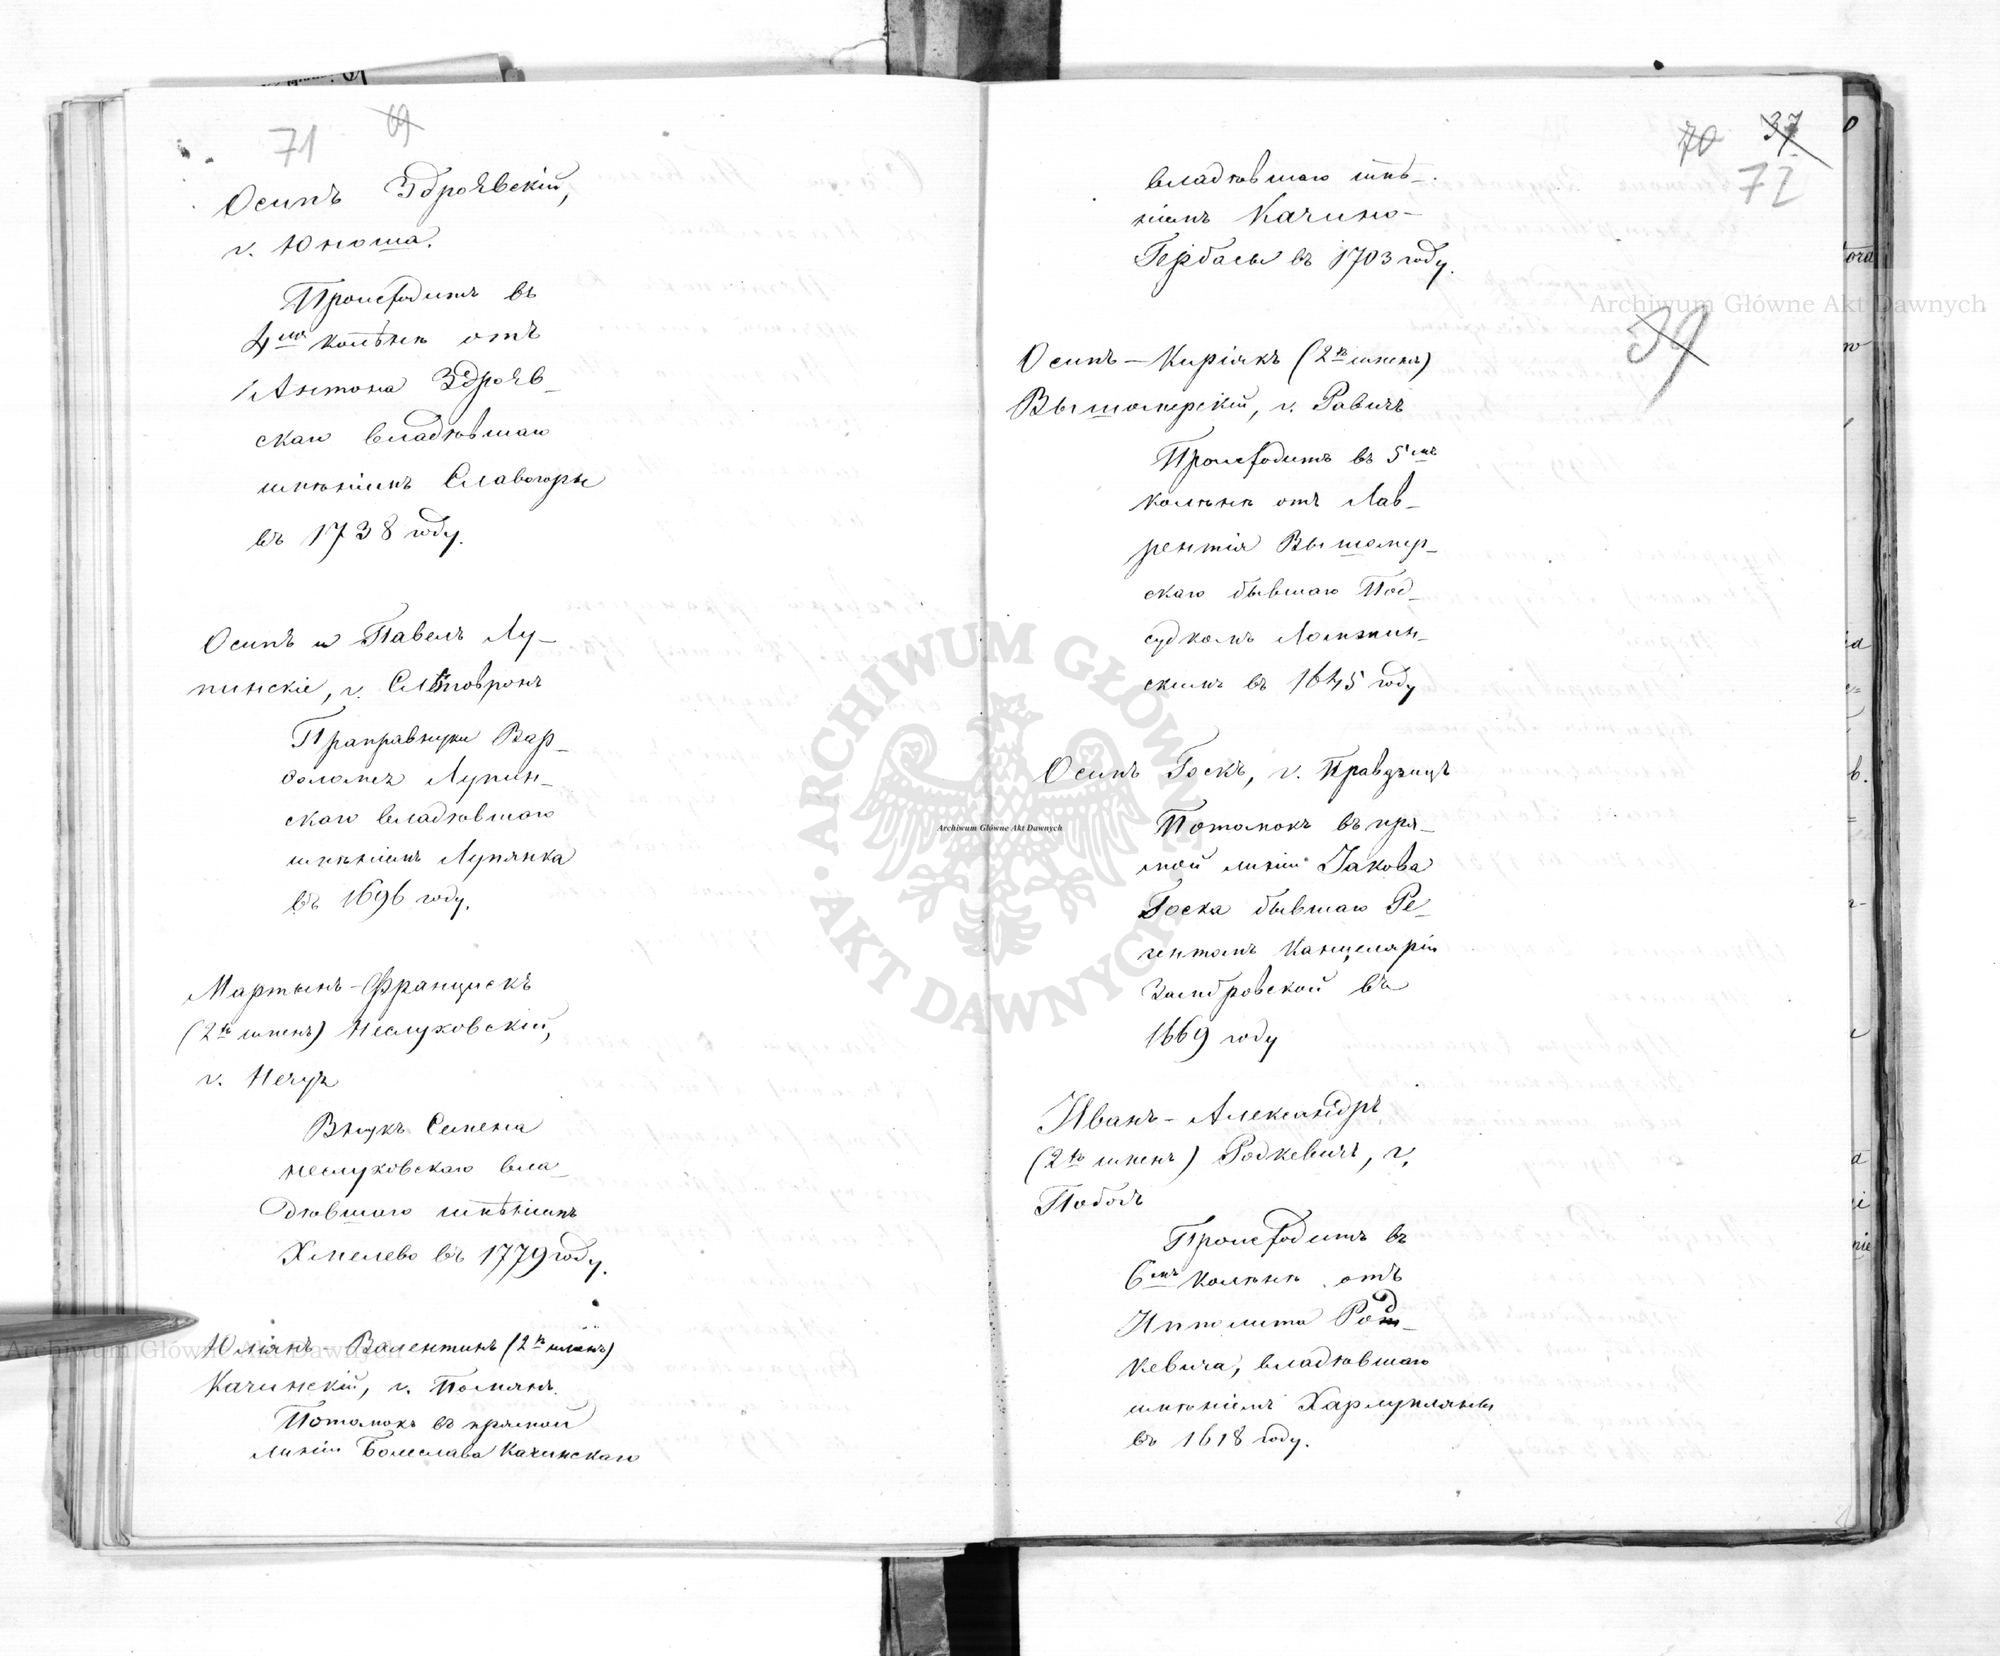 71 69
Осипъ Здроѣвскій,
г. Юноша.
Происходитъ въ
4мъ колѣнѣ отъ
Антона Здроѣв-
скаго владѣвшаго
имѣніемъ Славогоры
въ 1738 году.
Осипъ и Павелъ Лу-
пинскіе, г. Слѣповронъ
Праправнуки Вар-
ѳоломея Лупин-
скаго владѣвшаго
имѣніемъ Лупянка
въ 1696 году.
Мартынъ-Францискъ
(2хъ именъ) Неслуховскій,
г. Нечуя
Внукъ Семена
Неслуховскаго вла-
дѣвшаго имѣніемъ
Хмелево въ 1779 году.
Юліянъ-Валентинъ (2хъ именъ)
Качинскій, г. Помянъ.
Потомокъ въ прямой
линіи Болеслава Качинскаго
70 37
72
владѣвшаго имѣ-
ніемъ Качино-
Гербасы въ 1703 году.
39
Осипъ-Киріякъ (2хъ именъ)
Вышомирскій, г. Равичъ
Происходитъ въ 5мъ
колѣнѣ отъ Лав-
рентія Вышомир-
скаго бывшаго Под-
судкомъ Ломжин-
скимъ въ 1645 году
Осипъ Госкъ, г. Правдзицъ
Потомокъ въ пря-
мой линіи Іакова
Госка бывшаго Ре-
гентомъ Канцеляріи
Замбровской въ
1669 году
Иванъ-Александръ
(2хъ именъ) Родкевичъ, г.
Побогъ
Происходитъ въ
6мъ колѣнѣ отъ
Ипполита Род-
кевича, владѣвшаго
имѣніемъ Хармуплянъ
въ 1618 году.
Archiwum Główne Akt Dawnych
Archiwum Główne Akt Dawnych
Archiwum Główne Akt Dawnych
ARCHIWUM GŁÓWNE AKT DAWNYCH